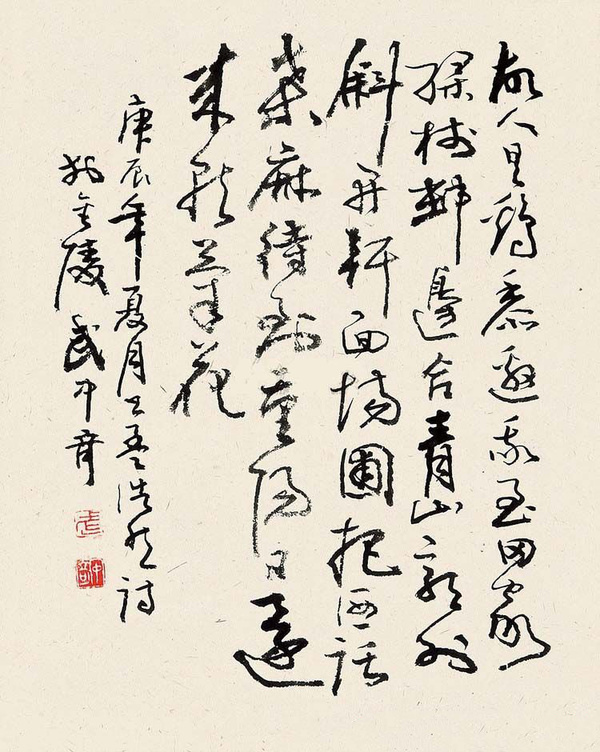 故人具鷄黍邀我至田家
緑樹邨邊合青山郭外
斜开軒面場圃把酒話
桑麻待到重陽日還
來就菊花
庚辰年夏月书孟浩然詩
於金陵武中奇
武
中奇